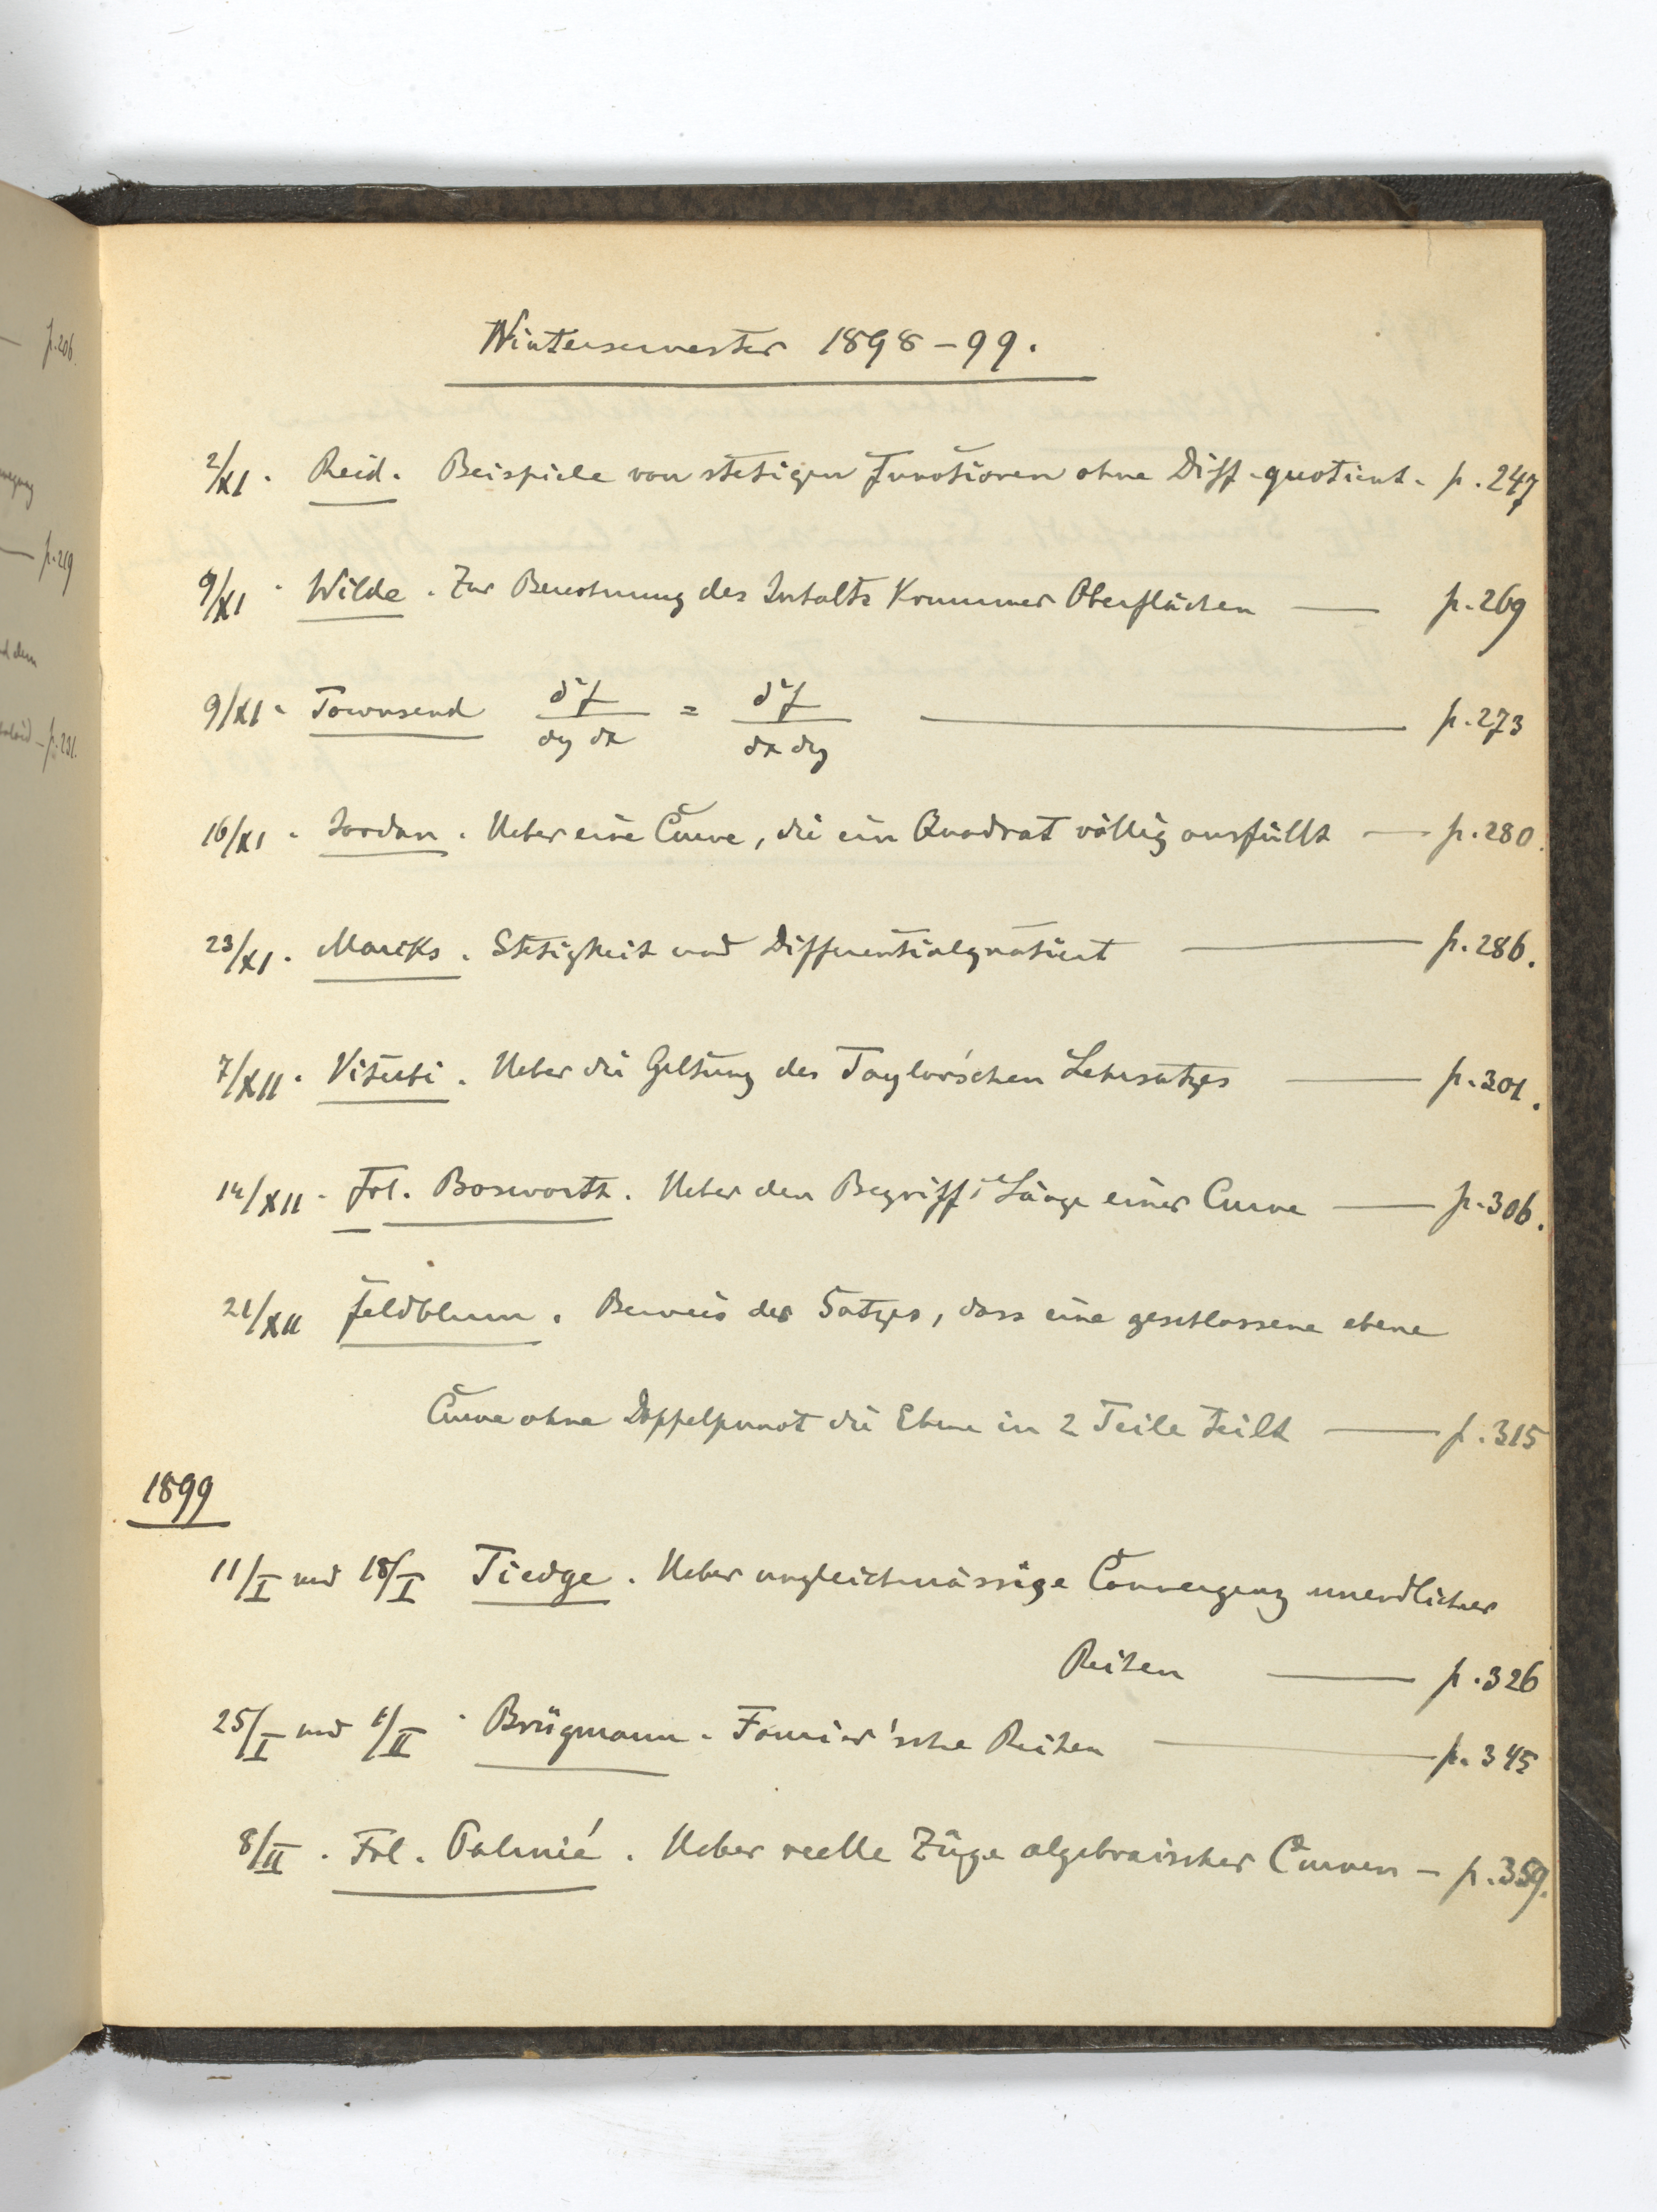 p. 206.
p. 219
p. 231.
Wintersemester 1898-99.
2/XI. Reid. Beispiele von stetigen Functionen ohne Diff.-quotient. p. 247
9/XI. Wilde. Zur Berechnung des Inhalts krummer Oberflächen — p. 269
9/XI. Townsend ∂²f/∂y∂x = ∂²f/∂x∂y — p. 273
16/XI. Jordan. Ueber eine Curve, die ein Quadrat völlig ausfüllt — p. 280.
23/XI. Marxs. Stetigkeit und Differentialquotient — p. 286.
7/XII. Viterbi. Ueber die Geltung des Taylor'schen Lehrsatzes — p. 301.
14/XII. Frl. Bosworth. Ueber den Begriff: Länge einer Curve — p. 306.
21/XII Feldblum. Beweis des Satzes, dass eine geschlossene ebene
Curve ohne Doppelpunct die Ebene in 2 Teile teilt — p. 315
1899
11/I und 18/I Tiedge. Ueber ungleichmässige Convergenz unendlicher
Reihen — p. 326
25/I und 1/II. Brügmann. Fourier'sche Reihen — p. 345
8/II. Frl. Palmié. Ueber reelle Züge algebraischer Curven — p. 359.